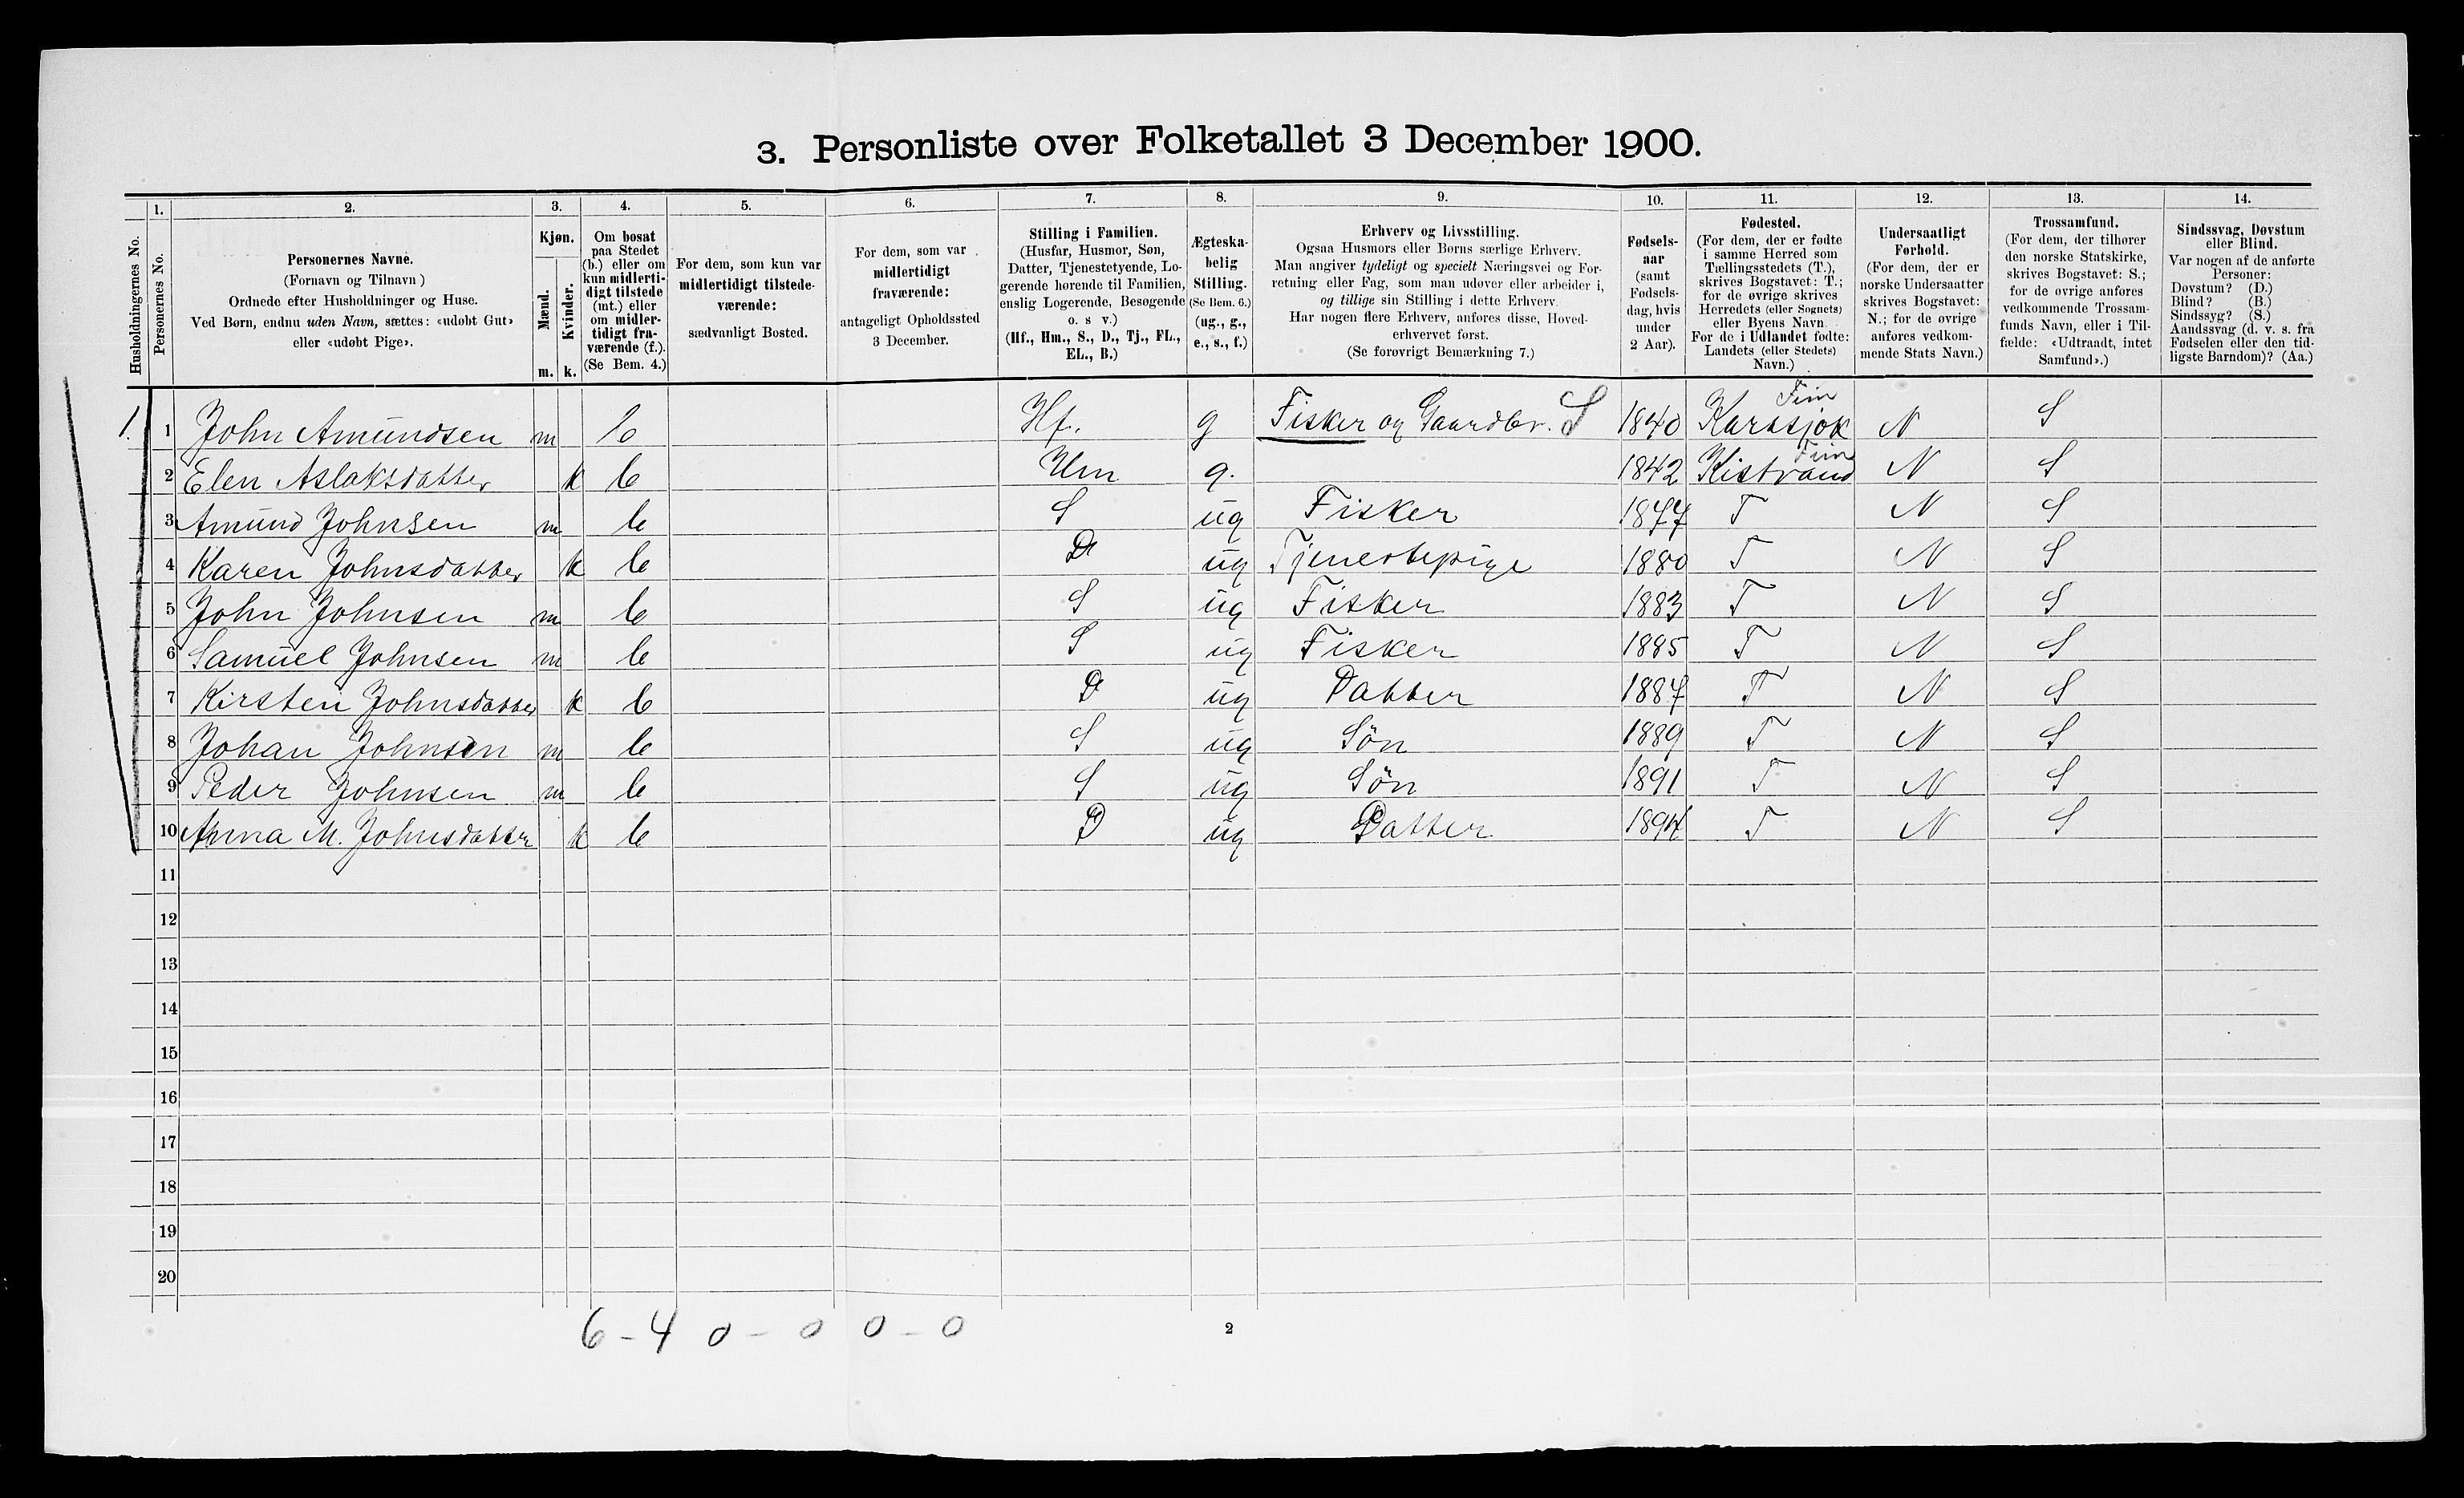 3. Personliste over Folketallet 3 December 1900.
1. 2. 3. 4. 5. 6. 7. 8. 9. 10. 11. 12. 13. 14.
Husholdningernes No.
Personernes No.
Personernes Navne.
(Fornavn og Tilnavn)
Ordnede efter Husholdninger og Huse.
Ved Børn, endnu uden Navn, sættes: «udøbt Gut»
eller «udøbt Pige».
Kjøn.
Mænd.
Kvinder.
m. k.
Om bosat
paa Stedet
(b.) eller om
kun midlerti-
digt tilstede
(mt.) eller
om midler-
tidigt fra-
værende (f.).
(Se Bem. 4.)
For dem, som kun var
midlertidigt tilstede-
værende:
sædvanligt Bosted.
For dem, som var
midlertidigt
fraværende:
antageligt Opholdssted
3 December.
Stilling i Familien.
(Husfar, Husmor, Søn,
Datter, Tjenestetyende, Lo-
gerende hørende til Familien,
enslig Logerende, Besøgende
o. s v.)
(Hf., Hm., S., D., Tj., FL.,
EL., B.)
Ægteska-
belig
Stilling.
(Se Bem. 6.)
(ug., g.,
e., s., f.)
Erhverv og Livsstilling.
Ogsaa Husmors eller Børns særlige Erhverv.
Man angiver tydeligt og specielt Næringsvei og For-
retning eller Fag, som man udøver eller arbeider i,
og tillige sin Stilling i dette Erhverv.
Har nogen flere Erhverv, anføres disse, Hoved-
erhvervet først.
(Se forøvrigt Bemærkning 7.)
Fødsels-
aar
(samt
Fødsels-
dag, hvis
under
2 Aar).
Fødested.
(For dem, der er fødte
i samme Herred som
Tællingsstedets (T.),
skrives Bogstavet: T.;
for de øvrige skrives
Herredets (eller Sognets)
eller Byens Navn.
For de i Udlandet fødte:
Landets (eller Stedets)
Navn.)
Undersaatligt
Forhold.
(For dem, der er
norske Undersaatter
skrives Bogstavet:
N.; for de øvrige
anføres vedkom-
mende Stats Navn.)
Trossamfund.
(For dem, der tilhører
den norske Statskirke,
skrives Bogstavet: S.;
for de øvrige anføres
vedkommende Trossam-
funds Navn, eller i Til-
fælde: «Udtraadt, intet
Samfund».)
Sindssvag, Døvstum
eller Blind.
Var nogen af de anførte
Personer:
Døvstum? (D.)
Blind? (B.)
Sindssyg? (S.)
Aandssvag (d. v. s. fra
Fødselen eller den tid-
ligste Barndom)? (Aa.)
1. 1 John Amundsen m b Hf. g Fisker og Gaardbr. S 1840 Karasjok Fin N S
2 Elen Aslaksdatter k b Hm g. 1842 Kistrand Fin N S
3 Amund Johnsen m b S ug Fisker 1877 T N S
4 Karen Johnsdatter k b D ug Tjenestepige 1880 T N S
5 John Johnsen m b S ug Fisker 1883 T N S
6 Samuel Johnsen m b S ug Fisker 1885 T N S
7 Kirsten Johnsdatter k b D ug Datter 1887 T N S
8 Johan Johnsen m b S ug Søn 1889 T N S
9 Peder Johnsen m b S ug Søn 1891 T N S
10 Anna M. Johnsdatter k b D ug Datter 1894 T N S
11
12
13
14
15
16
17
18
19
20
6 - 4 0 - 0 0 - 0
2